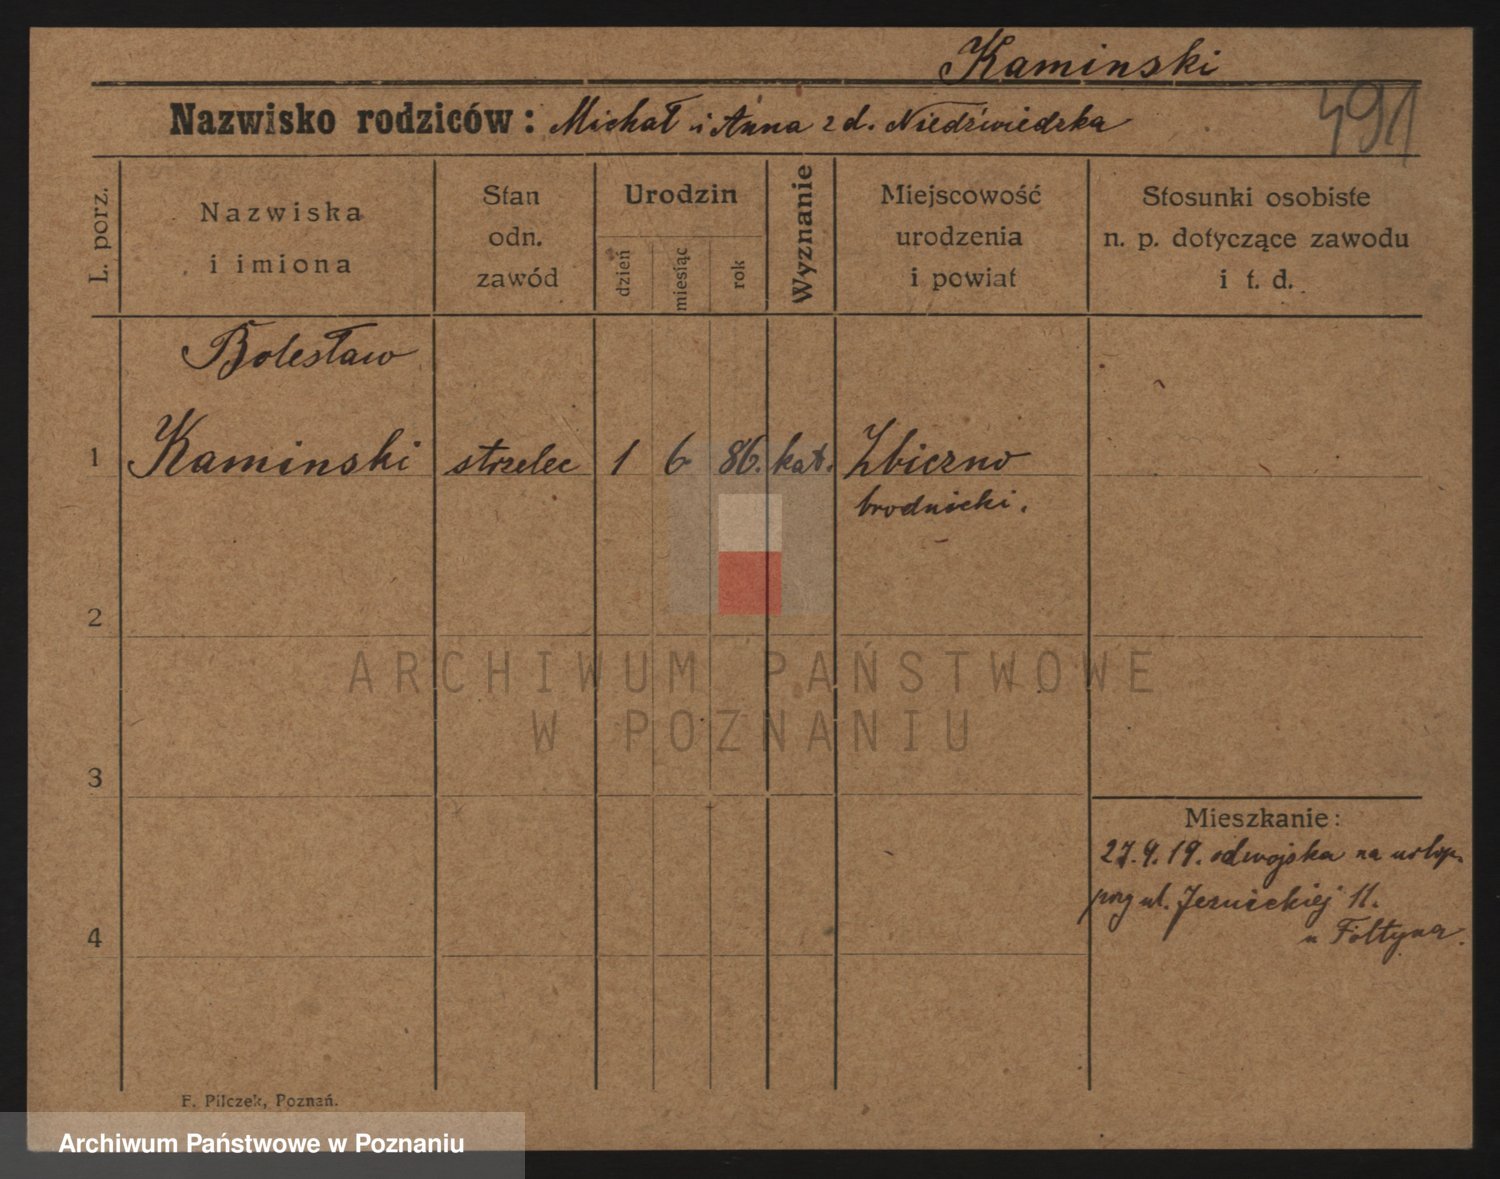 Kaminski
Nazwisko rodziców: Michał i Anna z d. Niedźwiedzka
491
L. porz.
Nazwiska
i imiona
Stan
odn.
zawód
Urodzin
dzień
miesiąc
rok
Wyznanie
Miejscowość
urodzenia
i powiat
Stosunki osobiste
n. p. dotyczące zawodu
i t. d.
Bolesław
1 Kaminski strzelec 1 6 86. kat. Zbiczno
brodnicki.
2
ARCHIWUM PAŃSTWOWE
W POZNANIU
3
Mieszkanie:
27.9.19. od wojska na urlop.
przy ul. Jezuickiej 11.
4
u Foltyna.
F. Pilczek, Poznań.
Archiwum Państwowe w Poznaniu